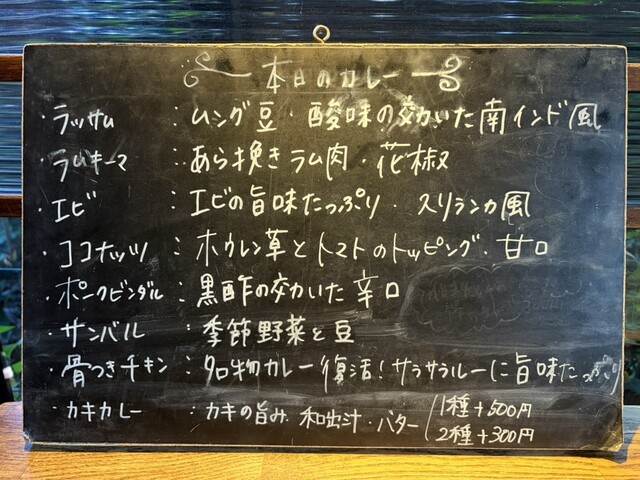 本日のカレー
・ラッサム：ムング豆・酸味の効いた南インド風
・ラムキーマ：あら挽きラム肉・花椒
・エビ：エビの旨味たっぷり・スリランカ風
・ココナッツ：ホウレン草とトマトのトッピング・甘口
・ポークビンダル：黒酢の効いた辛口
・サンバル：季節野菜と豆
・骨つきチキン：名物カレー復活！サラサラルーに旨味たっぷり
・カキカレー：カキの旨み・和出汁・バター（1種+500円
2種+300円